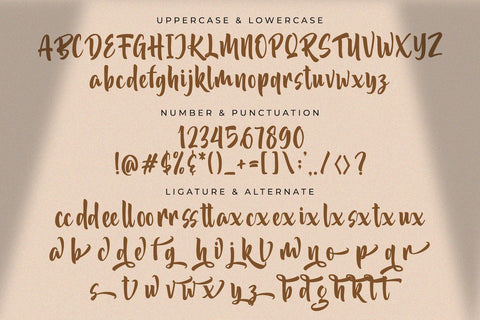 UPPERCASE & LOWERCASE
ABCDEFGHIJKLMNOPQRSTUVWXYZ
abcdefghijklmnopqrstuvwxyz
NUMBER & PUNCTUATION
1234567890
!@#$%&*()_+=[]\:;,./<>?
LIGATURE & ALTERNATE
cc dd ee ll oo rr ss tt ax cx ex ix lx sx tx ux
a b c d e f g h i j k l m n o p q r
s t u v w x y z b d g h k t l